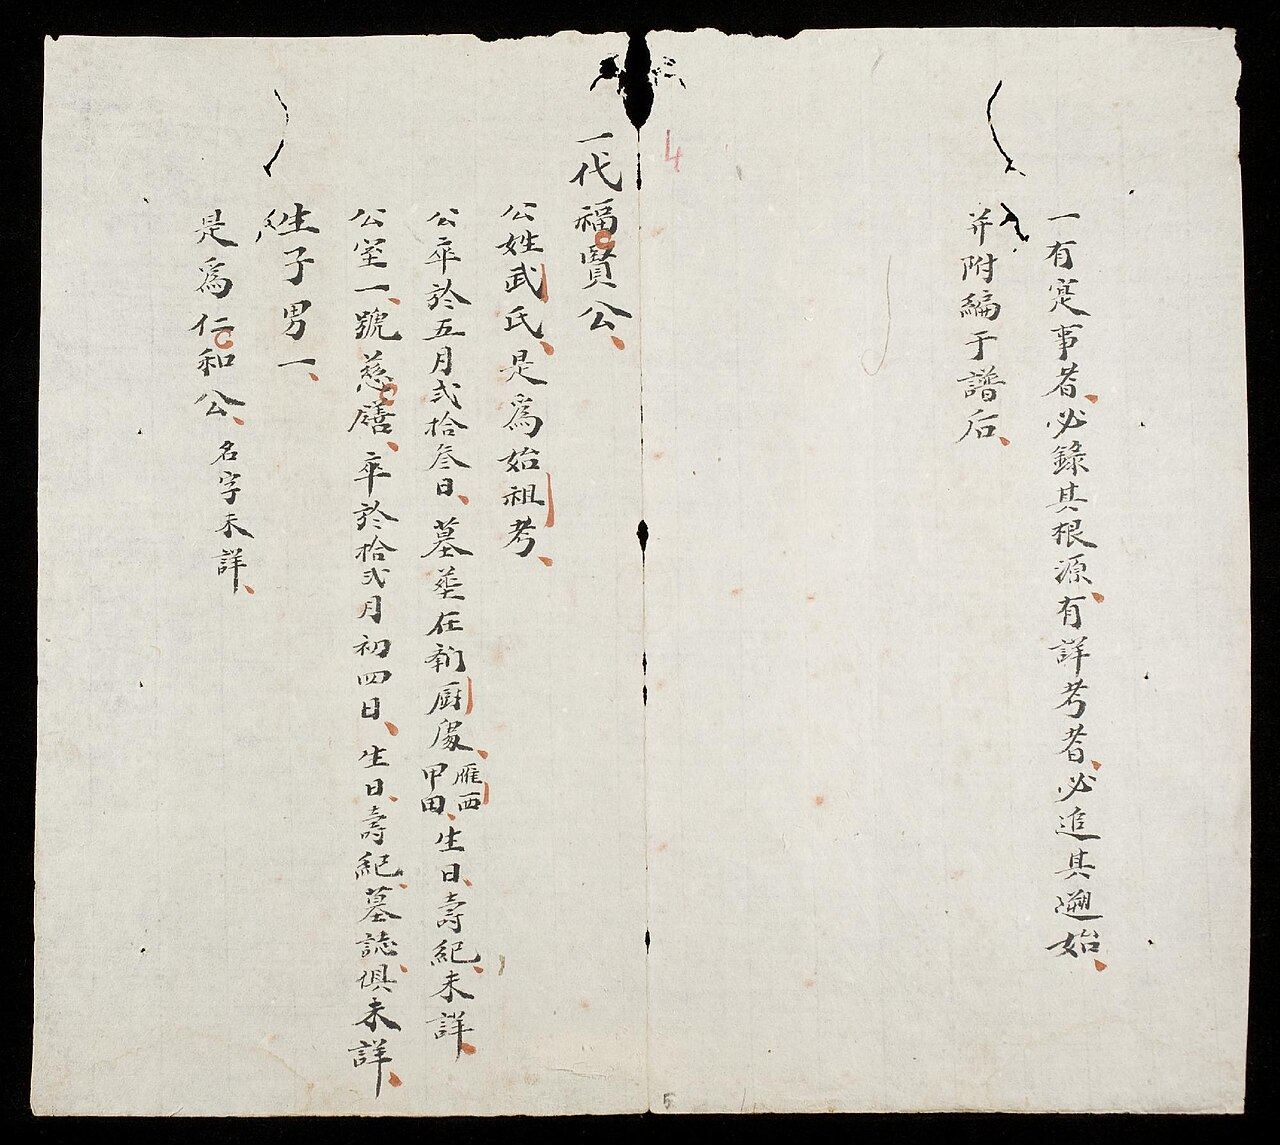 一有寔事者必錄其根源有詳考者必追其遡始
并附編于譜后
4
一代福賢公
公姓武氏是爲始祖考
公卒於五月貳拾叁日墓塟在厨處雁西甲田生日壽紀未詳
公室一號慈膳卒於拾貳月初四日生日壽紀墓誌俱未詳
生子男一
是爲仁和公名字未詳
5